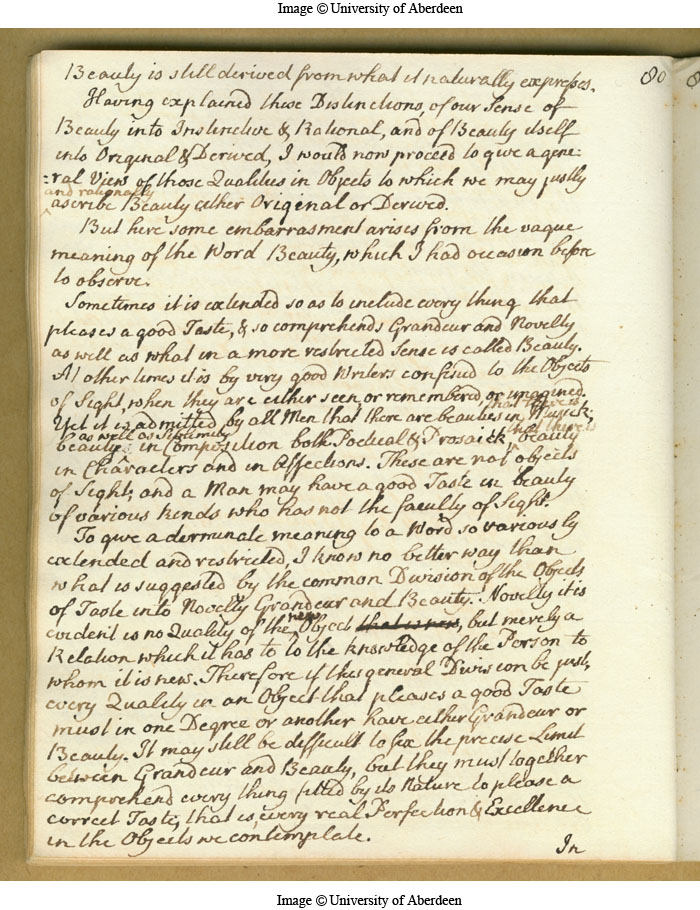 Image © University of Aberdeen
80
Beauty is still derived from what it naturally expresses.
Having explained these Distinctions, of our Sense of
Beauty into Instinctive & Rational, and of Beauty itself
into Original & Derived, I would now proceed to give a gene:
:ral View of those Qualities in Objects to which we may justly
and rationally
ascribe Beauty either Original or Derived.
But here some embarrasment arises from the vague
meaning of the Word Beauty, which I had occasion before
to observe.
Sometimes it is extended so as to include every thing that
pleases a good Taste, & so comprehends Grandeur and Novelty
as well as what in a more restricted Sense is called Beauty.
At other times it is by very good Writers confined to the Objects
of Sight, when they are either seen or remembered or imagined.
that there is
Yet it is admitted by all Men that there are beauties in Musick;
as well as Sublimity that there is
beauty in Composition both Poetical & Prosaick, beauty
in Characters and in Affections. These are not objects
of Sight; and a Man may have a good Taste in beauty
of various kinds who has not the faculty of Sight.
To give a derminate meaning to a Word so variously
extended and restricted, I know no better way than
what is suggested by the common Division of the Objects
of Taste into Novelty Grandeur and Beauty. Novelty it is
new
evident is no Quality of the Object that is new, but merely a
Relation which it has to to the knowledge of the Person to
whom it is new. Therefore if this general Division be just,
every Quality in an Object that pleases a good Taste
must in one Degree or another have either Grandeur or
Beauty. It may still be difficult to fix the precise Limit
between Grandeur and Beauty, but they must together
comprehend every thing fitted by its Nature to please a
correct Taste, that is, every real Perfection & Excellence
in the Objects we contemplate.
In
Image © University of Aberdeen